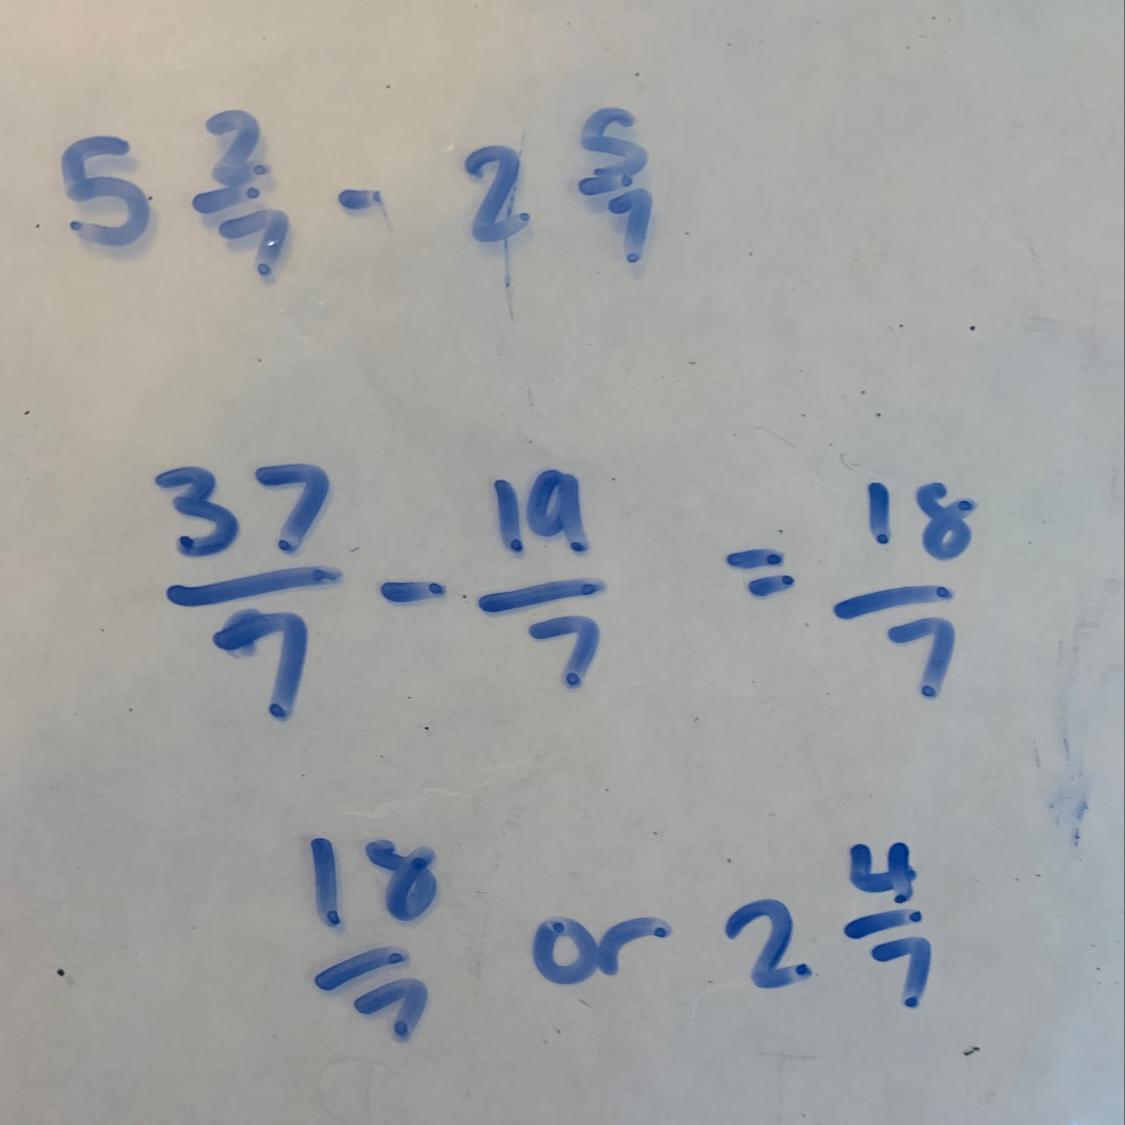 5 2/7 - 2 5/7
37/7 - 19/7 = 18/7
18/7 or 2 4/7